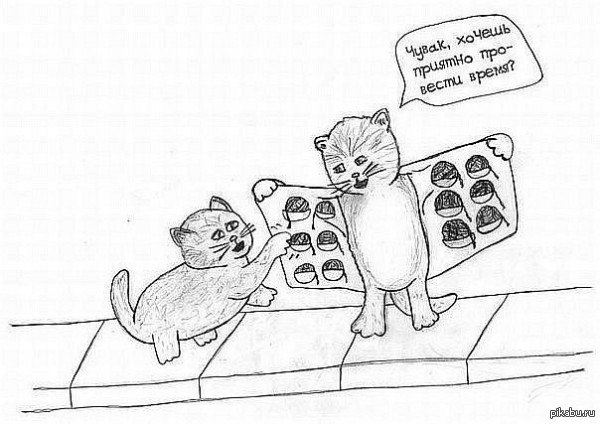 Чувак, хочешь
приятно про-
вести время?
pikabu.ru